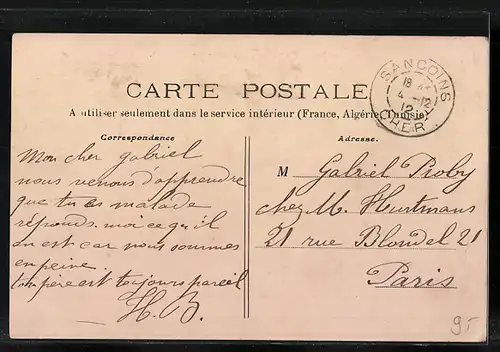 CARTE POSTALE
A utiliser seulement dans le service intérieur (France, Algérie, Tunisie)
SANCOINS
18
4 -12
12
CHER
Correspondance
Mon cher gabriel
nous venons d'apprendre
que tu es malade
réponds moi ce qu'il
en est car nous sommes
en peine
ton père est toujours pareil
H. B.
Adresse.
M Gabriel Proby
chez M. Hurtmans
21 rue Blondel 21
Paris
95